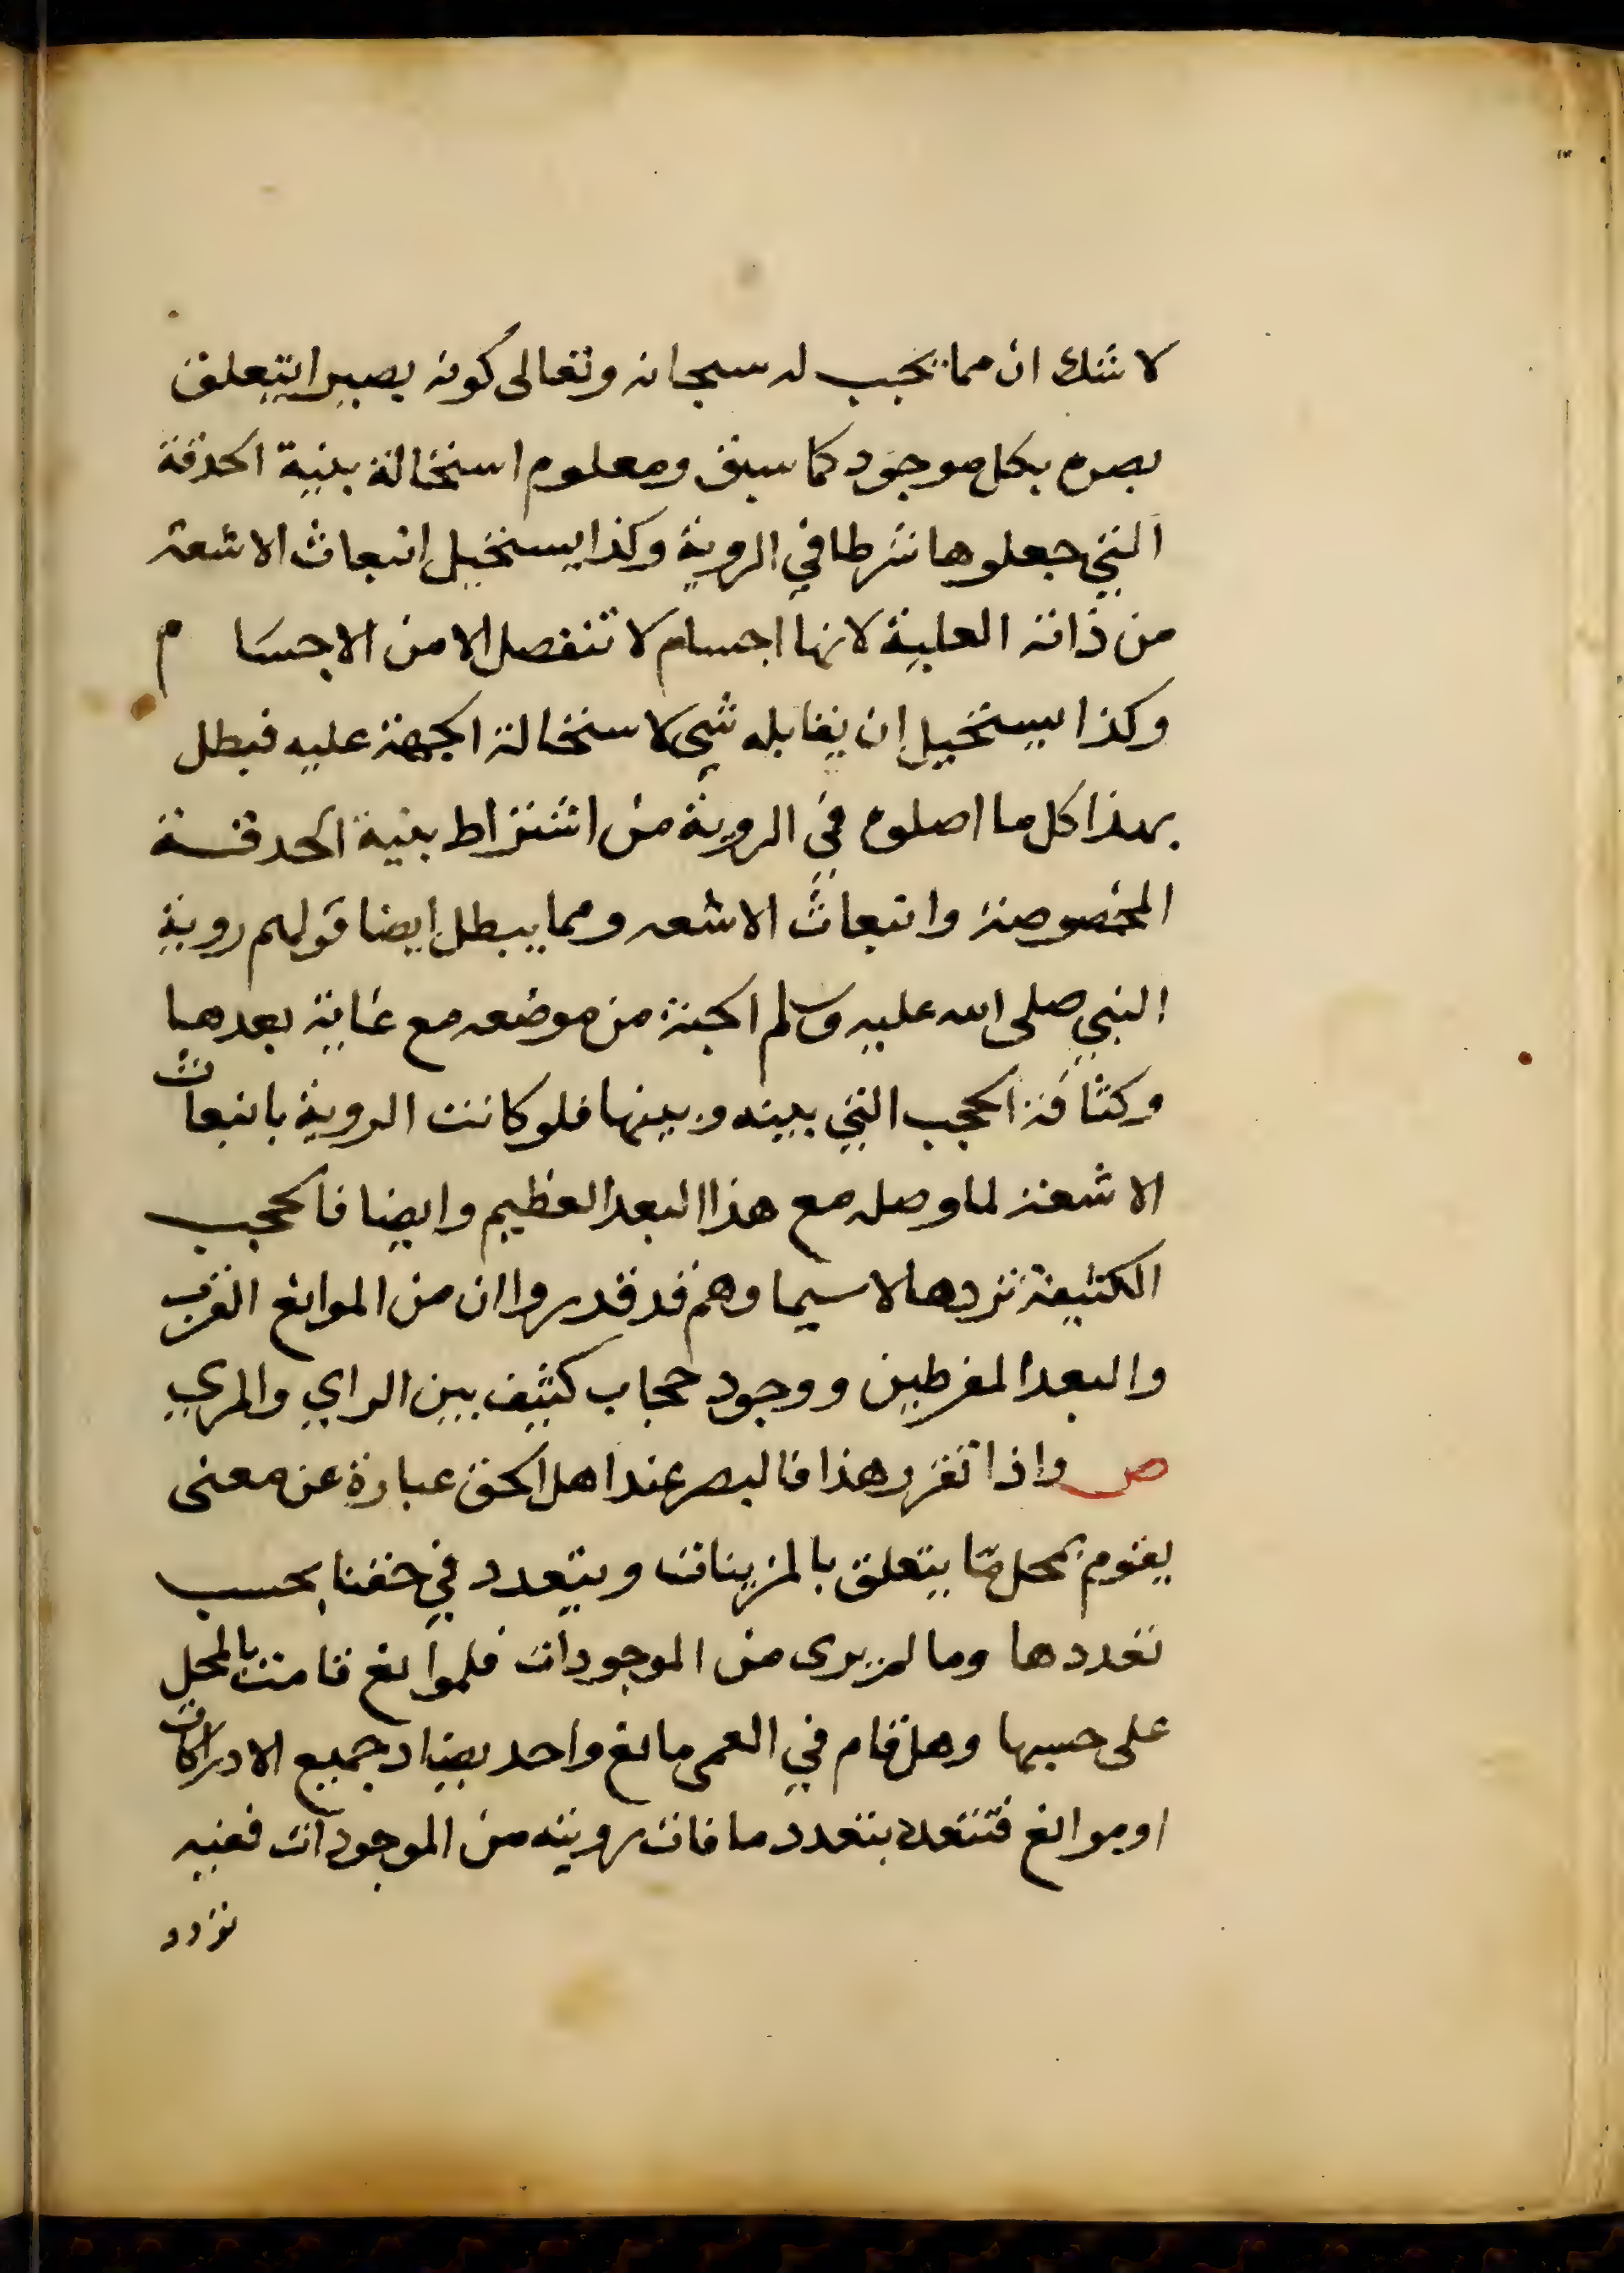 لا شك ان مما يجب له سبحانه وتعالى كونه بصيرا يتعلق
بصره بكل موجود كما سبق ومعلوم استحالة بنية الحدقة
التي جعلوها شرطا في الروية وكذا يستحيل انبعاث الاشعة
من ذاته العلية لانها اجسام لا تنفصل الا من الاجسام
وكذا يستحيل ان يقابله شي لاستحالة الجهة عليه فبطل
بهذا كل ما اصلوه في الروية من اشتراط بنية الحدقة
المخصوصة وانبعاث الاشعه ومما يبطل ايضا قولهم روية
النبي صلى الله عليه وسلم الجنة من موضعه مع غاية بعدها
وكثافة الحجب التي بينه وبينها فلو كانت الروية بانبعاث
الاشعة لما وصله مع هذا البعد العظيم وايضا فالحجب
الكثيفة تردها لا سيما وهم قد قدروا ان من الموانع القرب
والبعد المفرطين ووجود حجاب كثيف بين الراي والمري
ص واذا تقرر هذا فالبصر عند اهل الحق عبارة عن معنى
يقوم بمحل ما يتعلق بالمريات ويتعدد في حقنا بحسب
تعددها وما لم يرى من الموجودات فلموانع قامت بالمحل
على حسبها وهل قام في العمى مانع واحد يضاد جميع الادراكات
او موانع فتتعدد بتعدد ما فات رويته من الموجودات ففيه
تردد